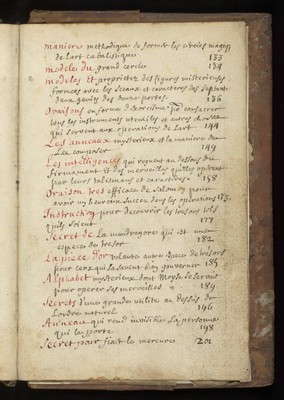 maniere methodique de former les cercles magiq
de lart cabalistique 133
modele du grand cercle 134
modeles Et proprietez des figures misterieuses
formees avec les Sceaux et caracteres des Septante
deux genies des douze portes. 136
Oraisons en forme d'exorcisme po consacrer
tous les instruments utensils et autres choses
qui servent aux operations de lart 144
Les anneaux mysterieux et la maniere de
Les composer 149
Les intelligences qui regnent au dessous du
firmament et des merveilles quelles operent
par leurs talismans et caracteres 158
Oraison tres efficace de Salomon pour
avoir un heureux succez dans les operations 175
Instruction pour decouvrir les tresors tels
quils soient 177
Secret de La mandragore qui est une
espece de tresor 182
La piece d'or volante autre espece de tresors
pour ceux qui la savent bien gouverner 185
Alphabet mysterieux dont Moyse se servoit
pour operer ses merveilles 189
Secrets d'une grande utilite au dessus de
Lordre naturel 196
Anneau qui rend invisible La personne
qui le porte 198
Secret pour fixer le mercure 201